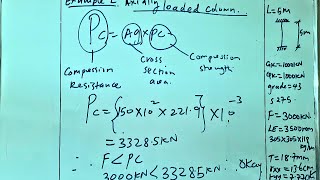 Example 2 Axially loaded column.
Pc = Ag x Pc
Compression Resistance
Cross section area.
Compression strength.
Pc = {150x10² x 221.9} x 10⁻³
= 3328.5KN
∴ F < PC
3000KN < 3328.5KN ∴ Okay
L = 5m
5m
GK = 1000KN
QK = 1000KN
grade = 43
S 275
F = 3000KN
LE = 3500mm
305x305x118
kg/m
T = 18.7mm
rxx = 13.6cm